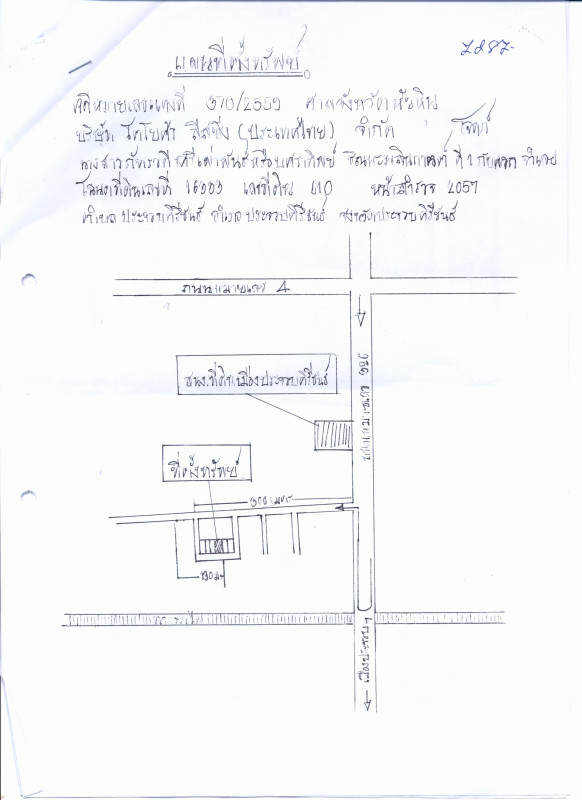 แผนที่ตั้งทรัพย์
7287-
คดีหมายเลขแดงที่ 370/2559 ศาลจังหวัดหัวหิน
บริษัท โตโยต้า ลีสซิ่ง (ประเทศไทย) จำกัด โจทก์
ที่ 1 กับพวก จำเลย
โฉนดที่ดินเลขที่ 16003 เลขที่ดิน 610 หน้าสำรวจ 2057
ตำบล ประจวบคีรีขันธ์ อำเภอ ประจวบคีรีขันธ์ จังหวัดประจวบคีรีขันธ์
ถนนหมายเลข 4
ถนนหมายเลข 326
สนง.ที่ดินเมืองประจวบคีรีขันธ์
ที่ตั้งทรัพย์
300 เมตร
130 ม.
ทางรถไฟ
เมืองประจวบฯ